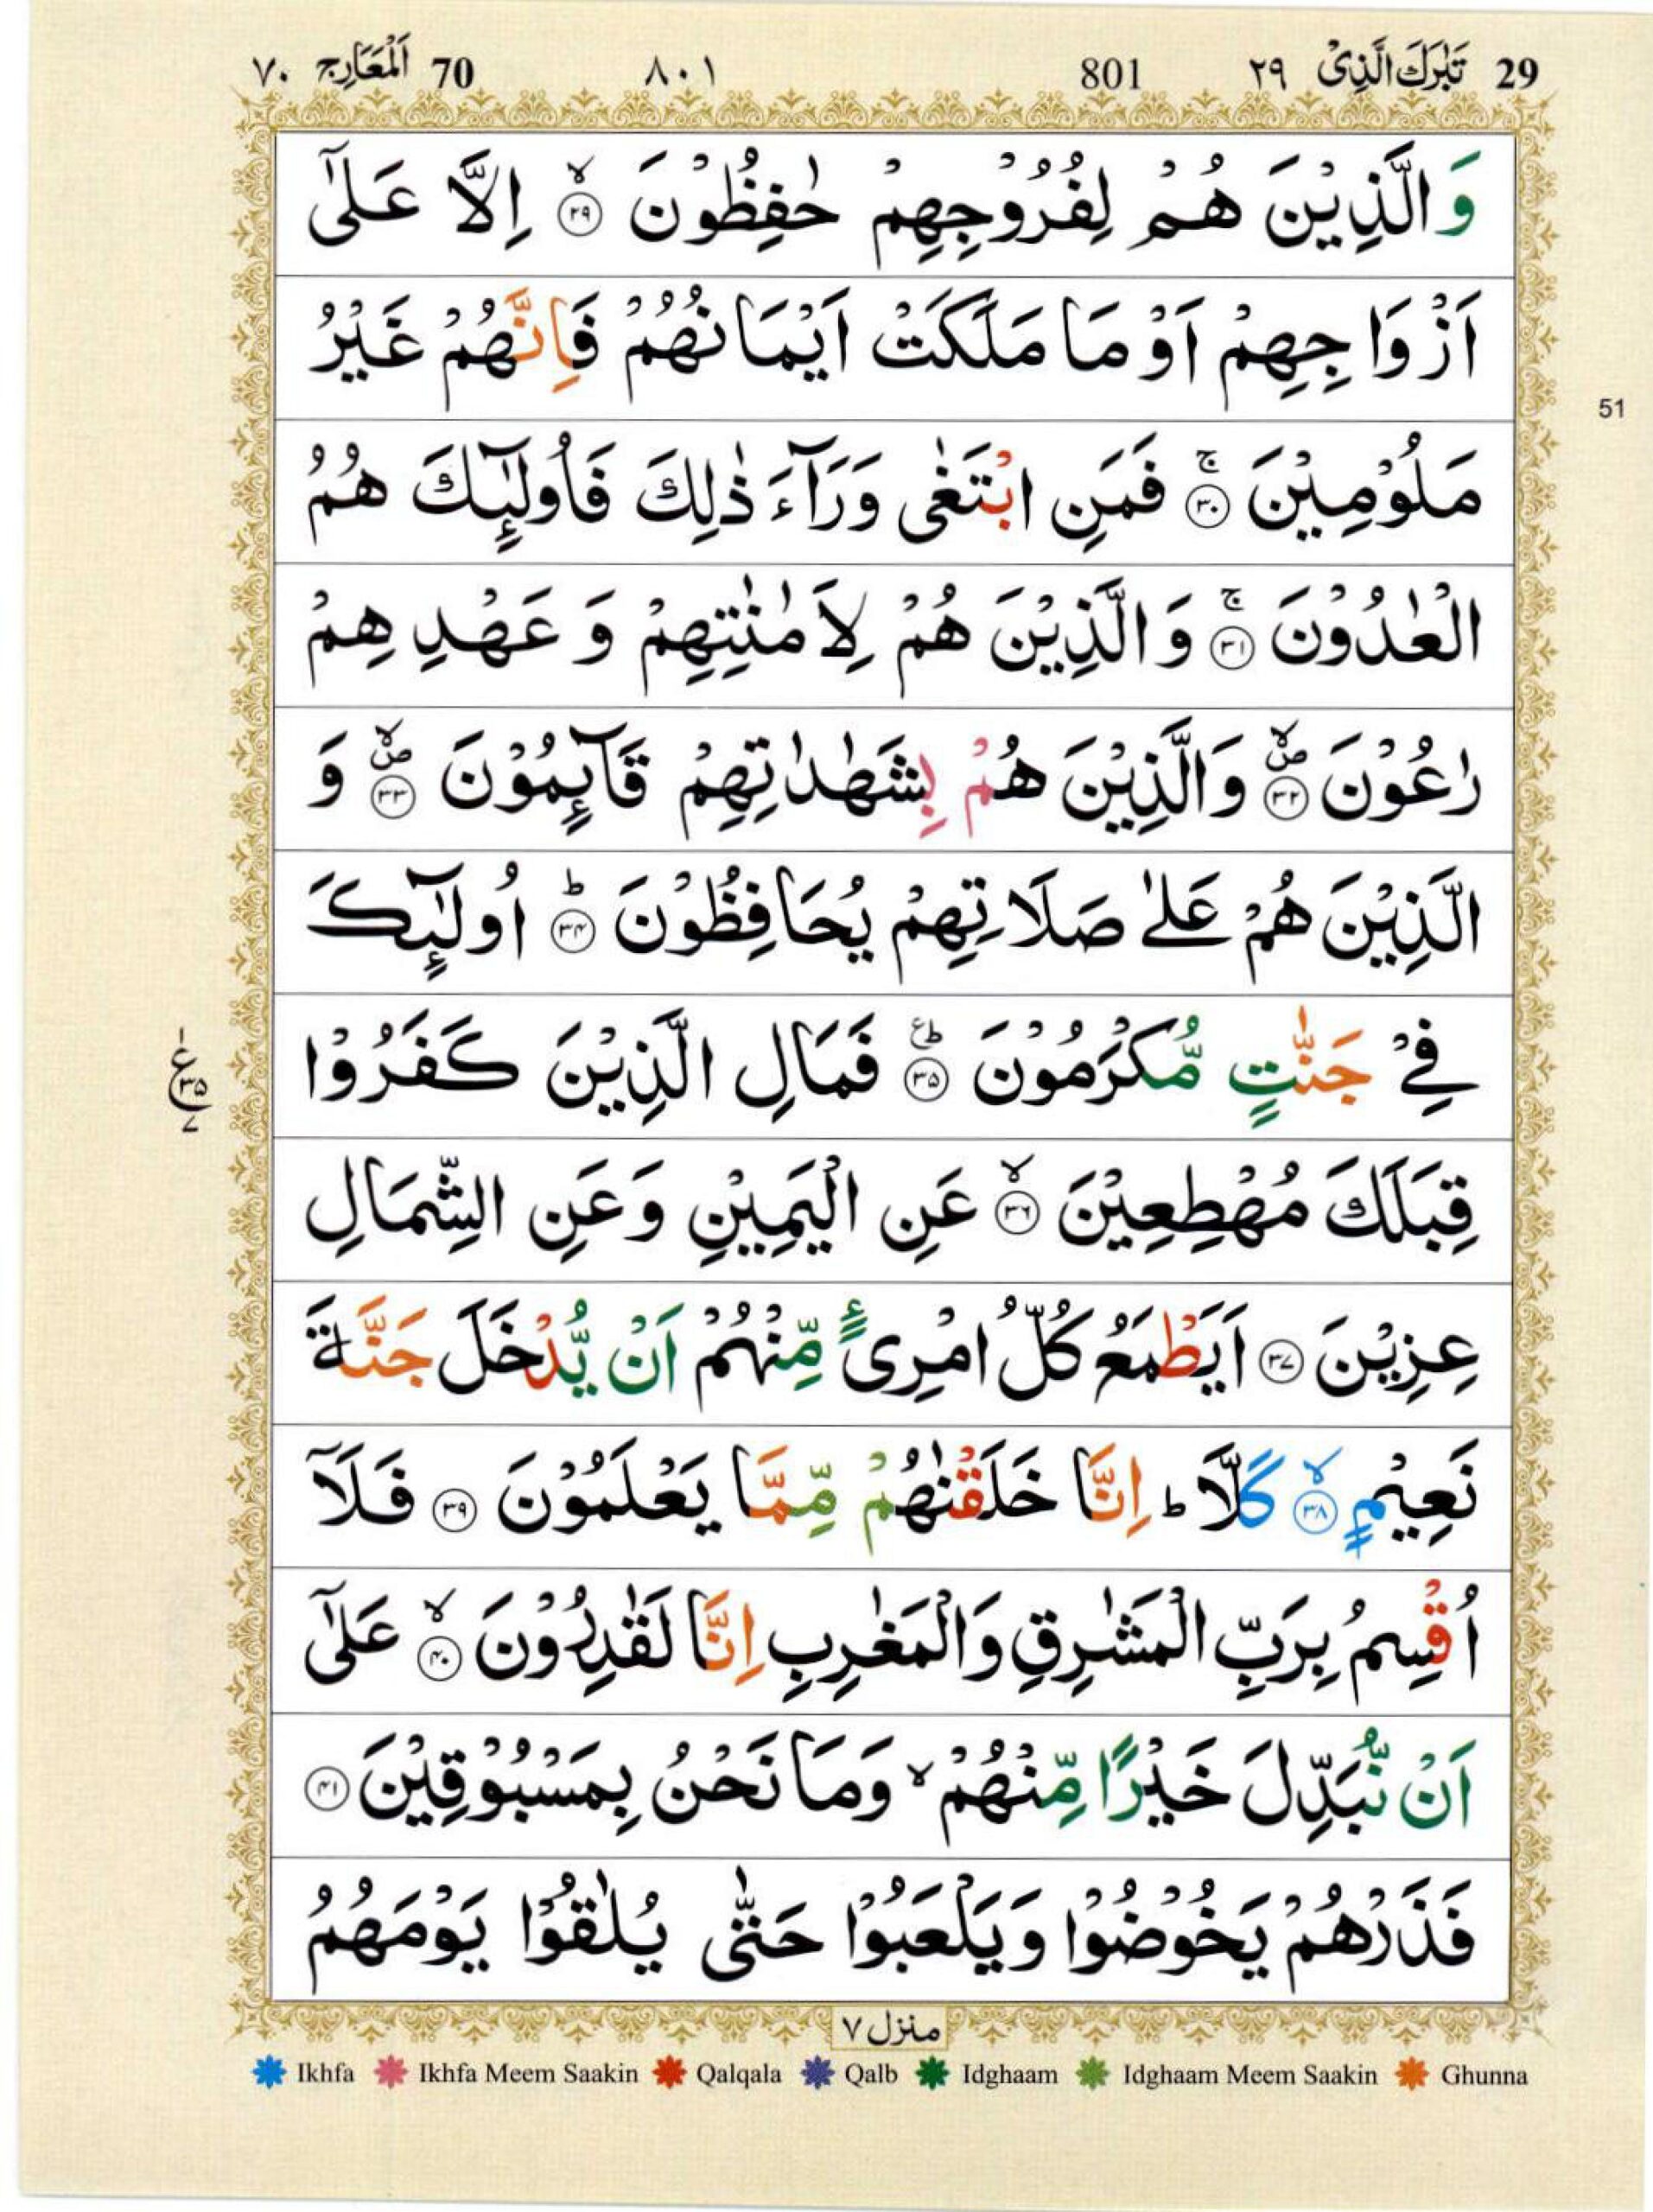 29 تَبٰرَكَ الَّذِیْ ٢٩ 801 ٨٠١ 70 اَلْمَعَارِج ٧٠
وَالَّذِیْنَ هُمْ لِفُرُوْجِهِمْ حٰفِظُوْنَ ۙ﴿۲۹﴾ اِلَّا عَلٰۤی
اَزْوَاجِهِمْ اَوْ مَا مَلَكَتْ اَیْمَانُهُمْ فَاِنَّهُمْ غَیْرُ
51
مَلُوْمِیْنَ ۚ﴿۳۰﴾ فَمَنِ ابْتَغٰی وَرَآءَ ذٰلِكَ فَاُولٰٓئِكَ هُمُ
الْعٰدُوْنَ ۚ﴿۳۱﴾ وَالَّذِیْنَ هُمْ لِاَمٰنٰتِهِمْ وَ عَهْدِهِمْ
رٰعُوْنَ ۪ۙ﴿۳۲﴾ وَالَّذِیْنَ هُمْ بِشَهٰدٰتِهِمْ قَآئِمُوْنَ ۪ۙ﴿۳۳﴾ وَ
الَّذِیْنَ هُمْ عَلٰی صَلَاتِهِمْ یُحَافِظُوْنَ ؕ﴿۳۴﴾ اُولٰٓئِكَ
فِیْ جَنّٰتٍ مُّكْرَمُوْنَ ؕ۠﴿۳۵﴾ فَمَالِ الَّذِیْنَ كَفَرُوْا
ع ۳۵ ۷
قِبَلَكَ مُهْطِعِیْنَ ۙ﴿۳۶﴾ عَنِ الْیَمِیْنِ وَعَنِ الشِّمَالِ
عِزِیْنَ ﴿۳۷﴾ اَیَطْمَعُ كُلُّ امْرِیًٔ مِّنْهُمْ اَنْ یُّدْخَلَ جَنَّةَ
نَعِیْمٍ ۙ﴿۳۸﴾ كَلَّا ؕ اِنَّا خَلَقْنٰهُمْ مِّمَّا یَعْلَمُوْنَ ﴿۳۹﴾ فَلَاۤ
اُقْسِمُ بِرَبِّ الْمَشٰرِقِ وَالْمَغٰرِبِ اِنَّا لَقٰدِرُوْنَ ۙ﴿۴۰﴾ عَلٰۤی
اَنْ نُّبَدِّلَ خَیْرًا مِّنْهُمْ ۙ وَمَا نَحْنُ بِمَسْبُوْقِیْنَ ﴿۴۱﴾
فَذَرْهُمْ یَخُوْضُوْا وَیَلْعَبُوْا حَتّٰی یُلٰقُوْا یَوْمَهُمُ
منزل ٧
Ikhfa Ikhfa Meem Saakin Qalqala Qalb Idghaam Idghaam Meem Saakin Ghunna